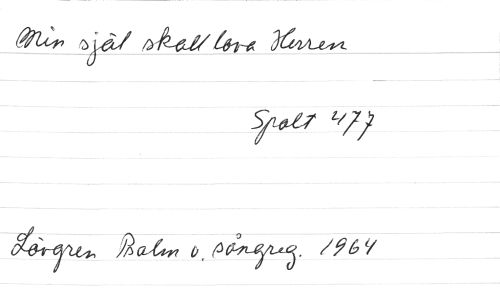 Min själ skall lova Herren
Spalt 477
Lövgren Psalm o. sångreg. 1964